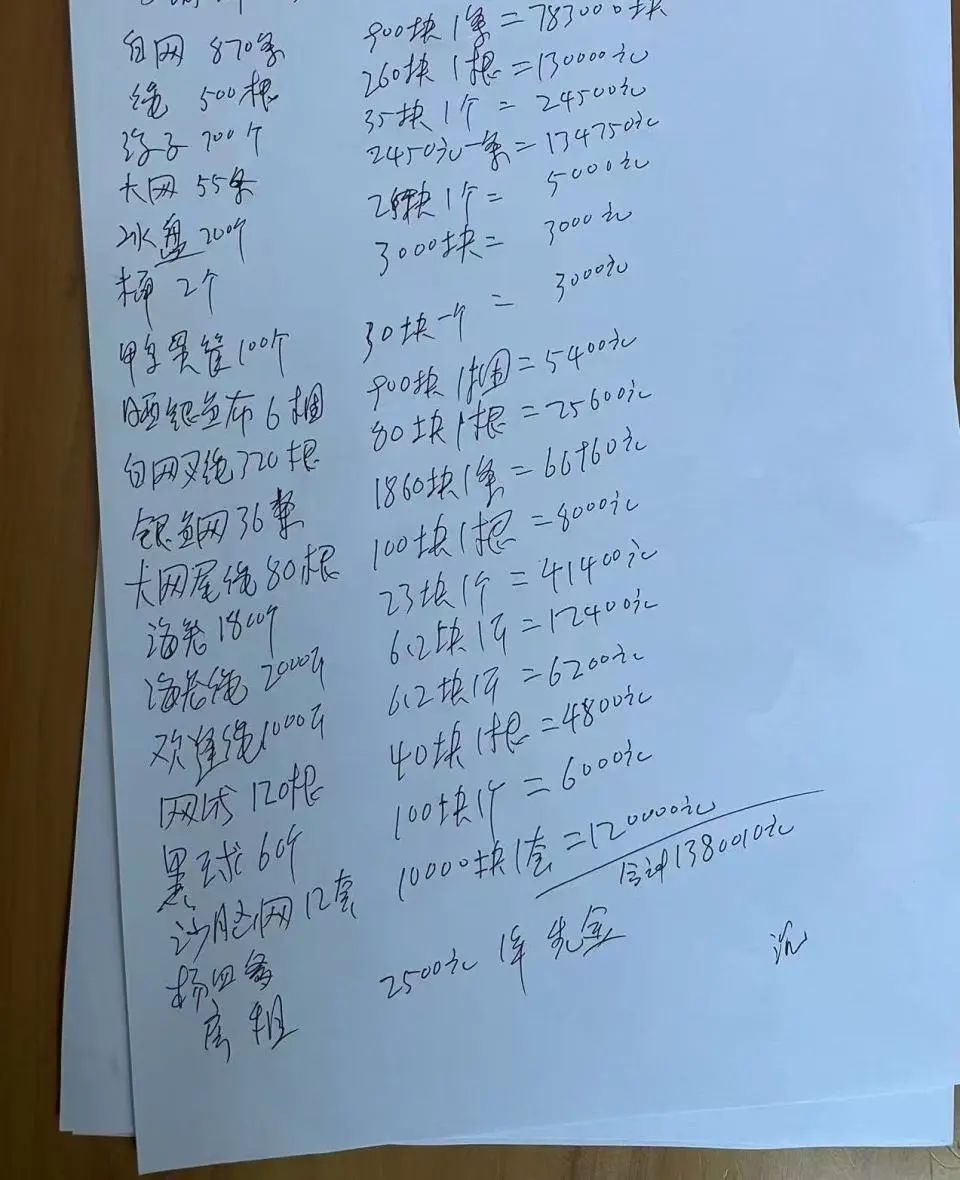 白网 870条 900块1条=783000块
绳 500根 260块1根=130000元
浮子 700个 35块1个=24500元
大网 55条 2450元一条=134750元
冰盘 200个 25块1个= 5000元
桶 2个 3000块= 3000元
30块一个 = 3000元
晒银鱼布 6捆 900块1捆=5400元
白网叉绳320根 80块1根=25600元
银鱼网36条 1860块1条=66960元
大网尾绳80根 100块1根=8000元
1800个 23块1个=41400元
绳 2000斤 6.2块1斤=12400元
绳1000斤 6.2块1斤=6200元
120根 40块1根=4800元
黑球60个 100块1个=6000元
网12套 10000块1套=120000元
合计1380010元
杨四爹
房租 2500元 1年